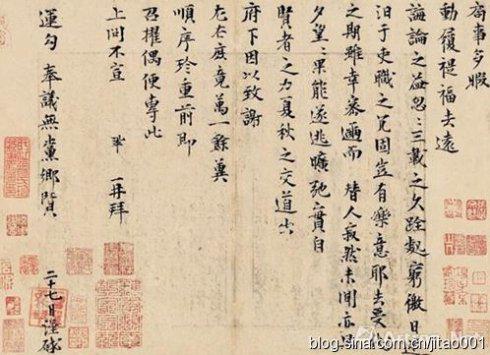 局事多暇
動履禔福去遠
誨論之益忽忽三載之久跧處窮徼日
汨于吏職之冗固豈有樂意耶去受
之期雖幸密邇而替人寂然未聞亦
夕望望果能遂逃曠弛實自
賢者之力夏秋之交道出
府下因以致謝
左右庶竟萬一餘冀
順序珍重前即
召擢偶便專此
上問不宣 鞏 再拜
運勾 奉議無黨鄉賢
二十七日謹
blog.sina.com.cn/jitao001